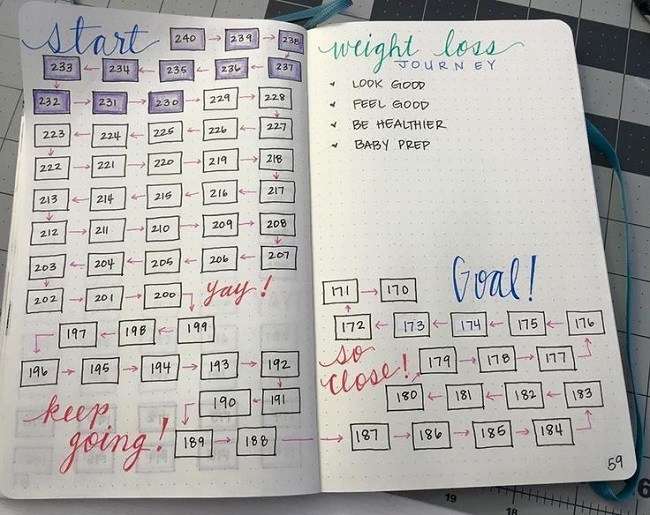 start 240 239 238
233 234 235 236 237
232 231 230 229 228
223 224 225 226 227
222 221 220 219 218
213 214 215 216 217
212 211 210 209 208
203 204 205 206 207
202 201 200 yay!
197 198 199
196 195 194 193 192
190 191
keep
going!
189 188
weight loss
JOURNEY
LOOK GOOD
FEEL GOOD
BE HEALTHIER
BABY PREP
Goal!
171 170
172 173 174 175 176
so
close!
179 178 177
180 181 182 183
187 186 185 184
59
19 18 6